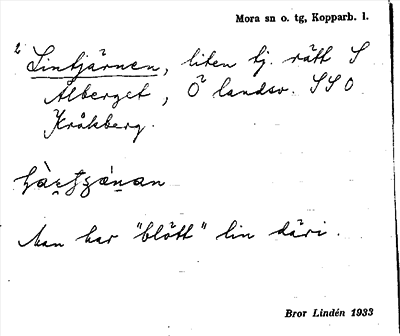 Mora sn o. tg, Kopparb. l.
2 Lintjärnen, liten tj. rätt S
Alberget, Ö landsv. SSO
Kråkberg.
Man har "blött" lin däri.
Bror Lindén 1933